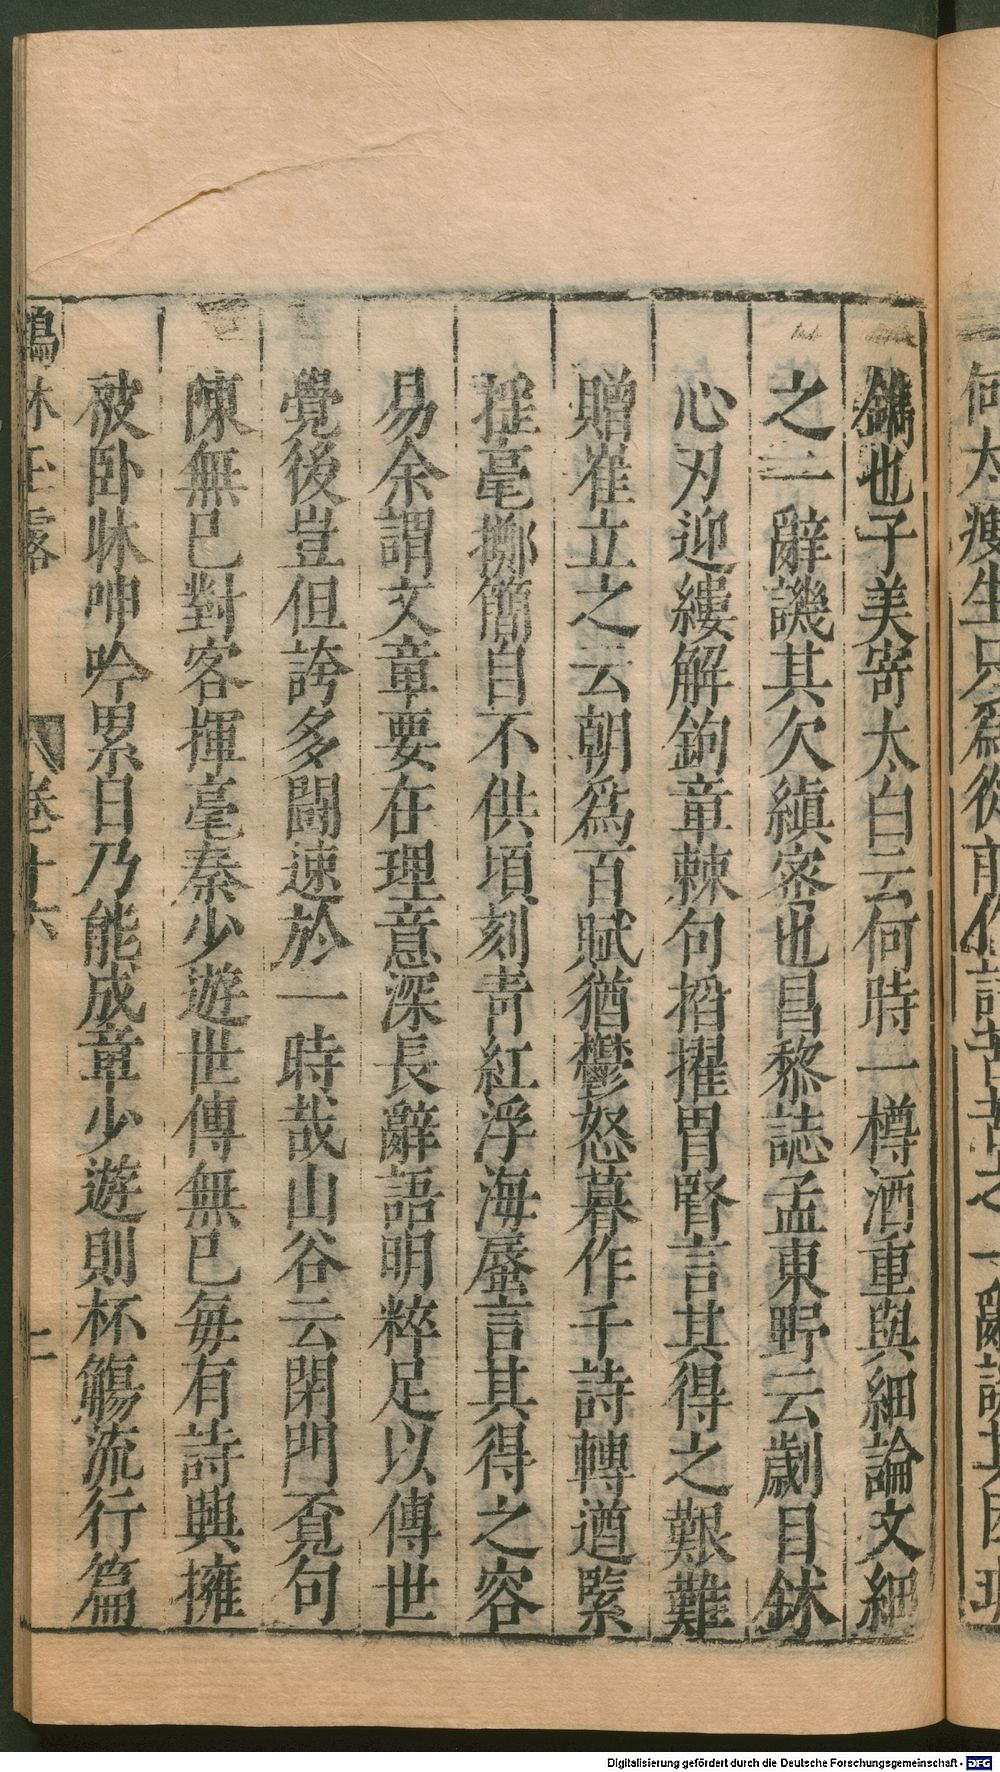 何太瘦生只爲從前作詩苦苦之一辭譏其困琱
鐫也子美寄太白云何時一樽酒重與細論文細
之一辭譏其欠縝密也昌黎誌孟東野云劌目鉥
心刃迎縷解鉤章棘句搯擢胃腎言其得之艱難
贈崔立之云朝爲百賦猶鬱怒暮作千詩轉遒緊
搖毫擲簡自不供頃刻靑紅浮海蜃言其得之容
易余謂文章要在理意深長辭語明粹足以傳世
覺後豈但誇多鬬速於一時哉山谷云閉門覔句
陳無巳對客揮毫秦少遊世傳無巳每有詩興擁
被卧牀呻吟累日乃能成章少遊則杯觴流行篇
鶴林玉露 卷十六 二
Digitalisierung gefördert durch die Deutsche Forschungsgemeinschaft - DFG